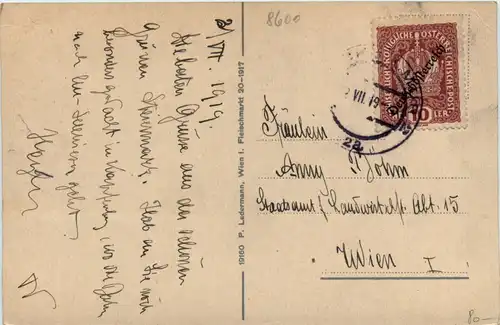 8600
3/VII. 1919.
Die besten Grüsse aus der schönen
Grünen Steiermark. Hab an Sie noch
besonders gedacht in Kapfenberg, wo die Bahn
nach
geht.
19160 P. Ledermann, Wien I. Fleischmarkt 20-1917
KAISERLICHE KÖNIGLICHE ÖSTERREICHISCHE POST
Deutschösterreich
10 HELLER
VII 19
2a
Fräulein
Anny Böhm
Staatsamt f. Landwirtsch. Abt. 15
Wien I
80-